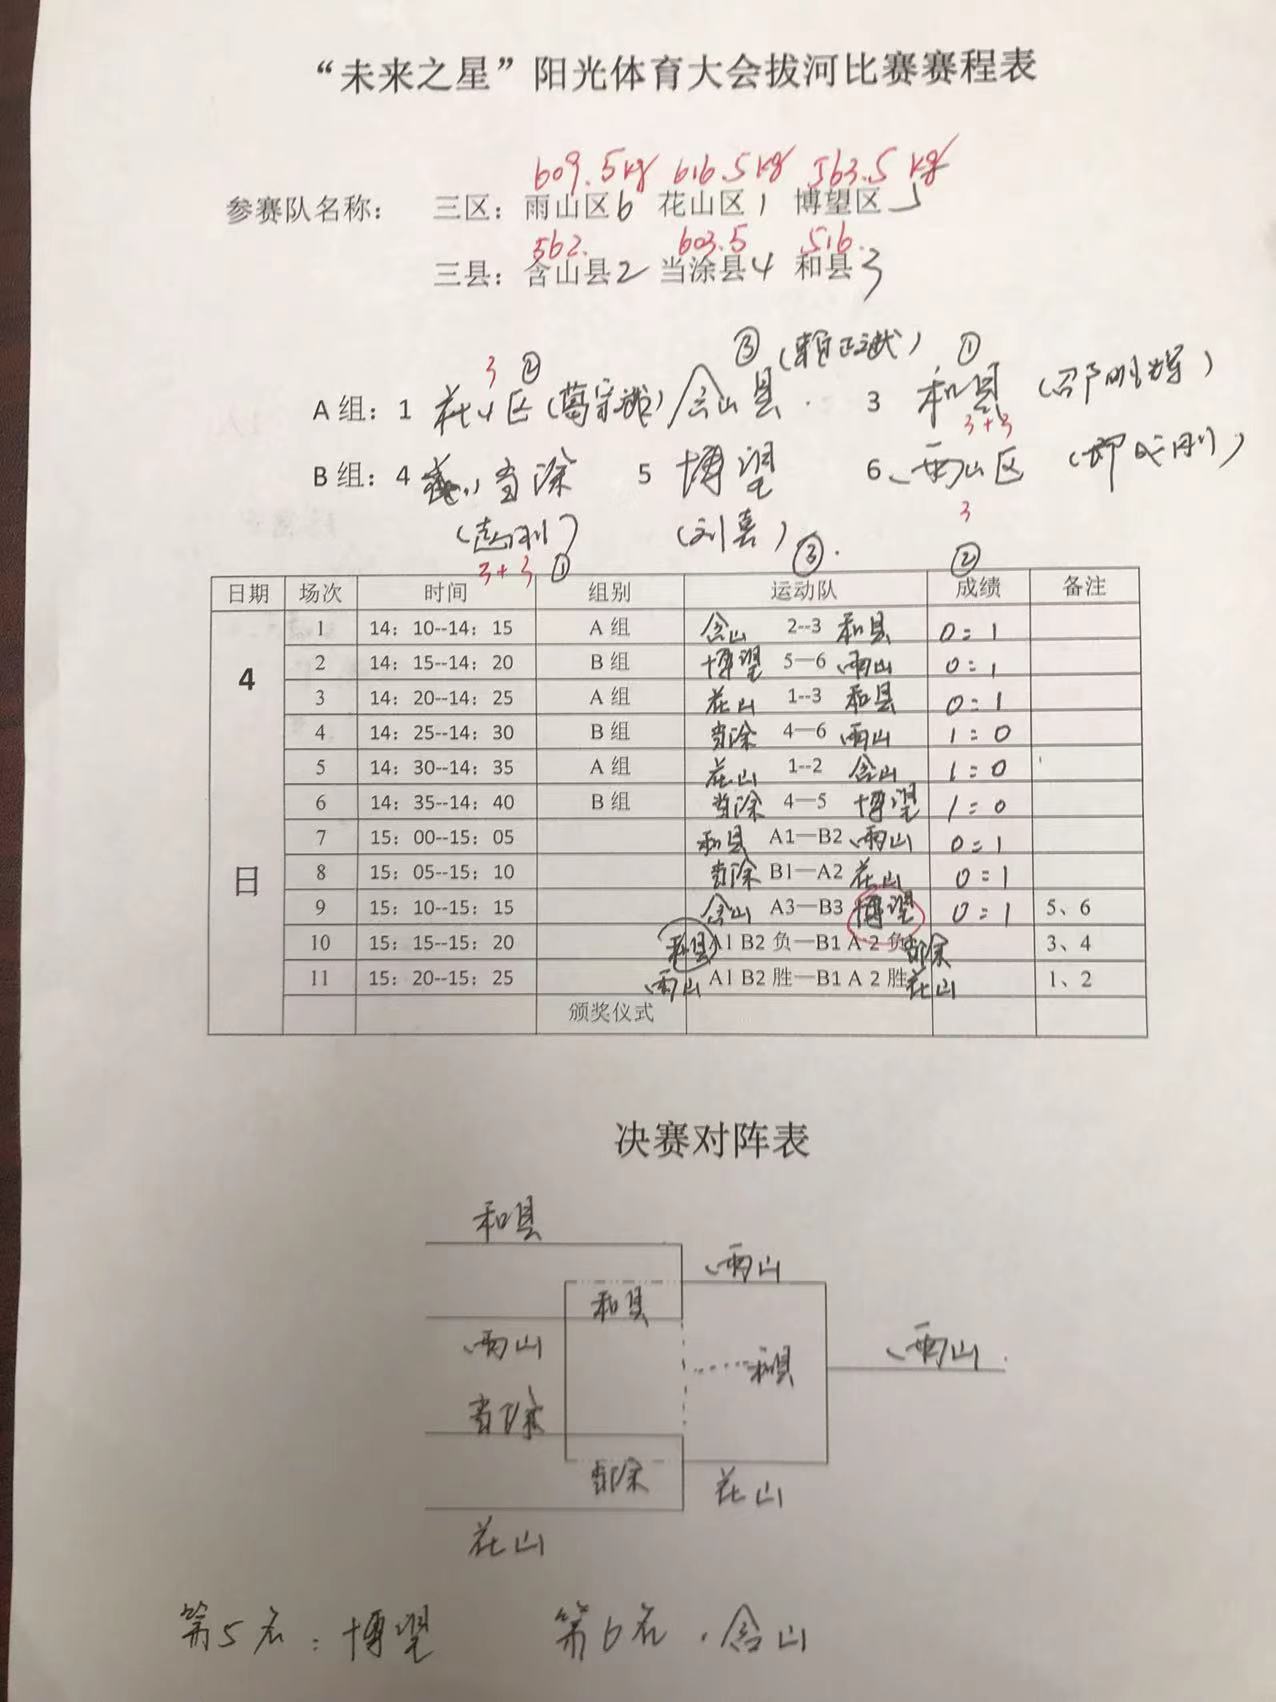 “未来之星”阳光体育大会拔河比赛赛程表
609.5kg 616.5kg 563.5kg
参赛队名称： 三区：雨山区6 花山区1 博望区5
562. 603.5 516.
三县：含山县2 当涂县4 和县3
3 ② ③ (赖正斌) ①
A组：1 花山区 含山县 3 和县
3+3
B组：4 当涂 5 博望 6 雨山区
(刘喜) 3
3+3 ① ③ ②
日期 场次 时间 组别 运动队 成绩 备注
4日
1 14：10--14：15 A组 含山 2--3 和县 0：1
2 14：15--14：20 B组 博望 5—6 雨山 0：1
3 14：20--14：25 A组 花山 1--3 和县 0：1
4 14：25--14：30 B组 当涂 4—6 雨山 1：0
5 14：30--14：35 A组 花山 1--2 含山 1：0
6 14：35--14：40 B组 当涂 4—5 博望 1：0
7 15：00--15：05 和县 A1—B2 雨山 0：1
8 15：05--15：10 当涂 B1—A2 花山 0：1
9 15：10--15：15 含山 A3—B3 博望 0：1 5、6
10 15：15--15：20 和县 A1 B2 负—B1 A 2 负 当涂 3、4
11 15：20--15：25 雨山 A1 B2 胜—B1 A 2 胜 花山 1、2
颁奖仪式
决赛对阵表
和县
雨山
和县
雨山
和县
雨山
当涂
当涂
花山
花山
第5名：博望 第6名．含山